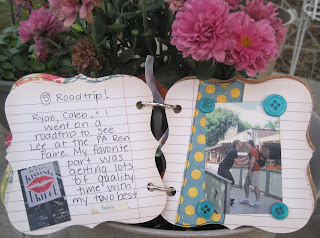 Roadtrip!
Ryan, Caleo, & I
went on a
roadtrip to see
Lee at the PA Ren
Faire. My favorite
part was
getting lots
of quality
time with
my two best
boys
KISSING